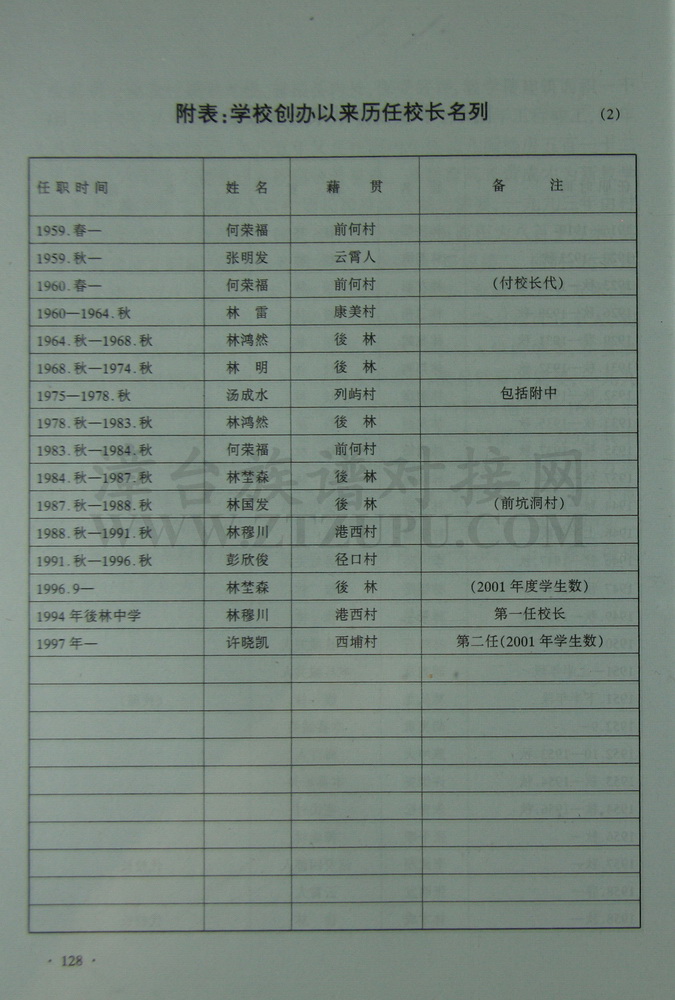 附表:学校创办以来历任校长名列 (2)
任职时间 姓 名 藉 贯 备 注
1959.春— 何荣福 前何村
1959.秋— 张明发 云霄人
1960.春— 何荣福 前何村 (付校长代)
1960—1964.秋 林 雷 康美村
1964.秋—1968.秋 林鸿然 後 林
1968.秋—1974.秋 林 明 後 林
1975—1978.秋 汤成水 列屿村 包括附中
1978.秋—1983.秋 林鸿然 後 林
1983.秋—1984.秋 何荣福 前何村
1984.秋—1987.秋 林埜森 後 林
1987.秋—1988.秋 林国发 後 林 (前坑洞村)
1988.秋—1991.秋 林穆川 港西村
1991.秋—1996.秋 彭欣俊 径口村
1996.9— 林埜森 後 林 (2001年度学生数)
1994年後林中学 林穆川 港西村 第一任校长
1997年— 许晓凯 西埔村 第二任(2001年学生数)
漳台族谱对接网
WWW.ZTZUPU.COM
· 128 ·